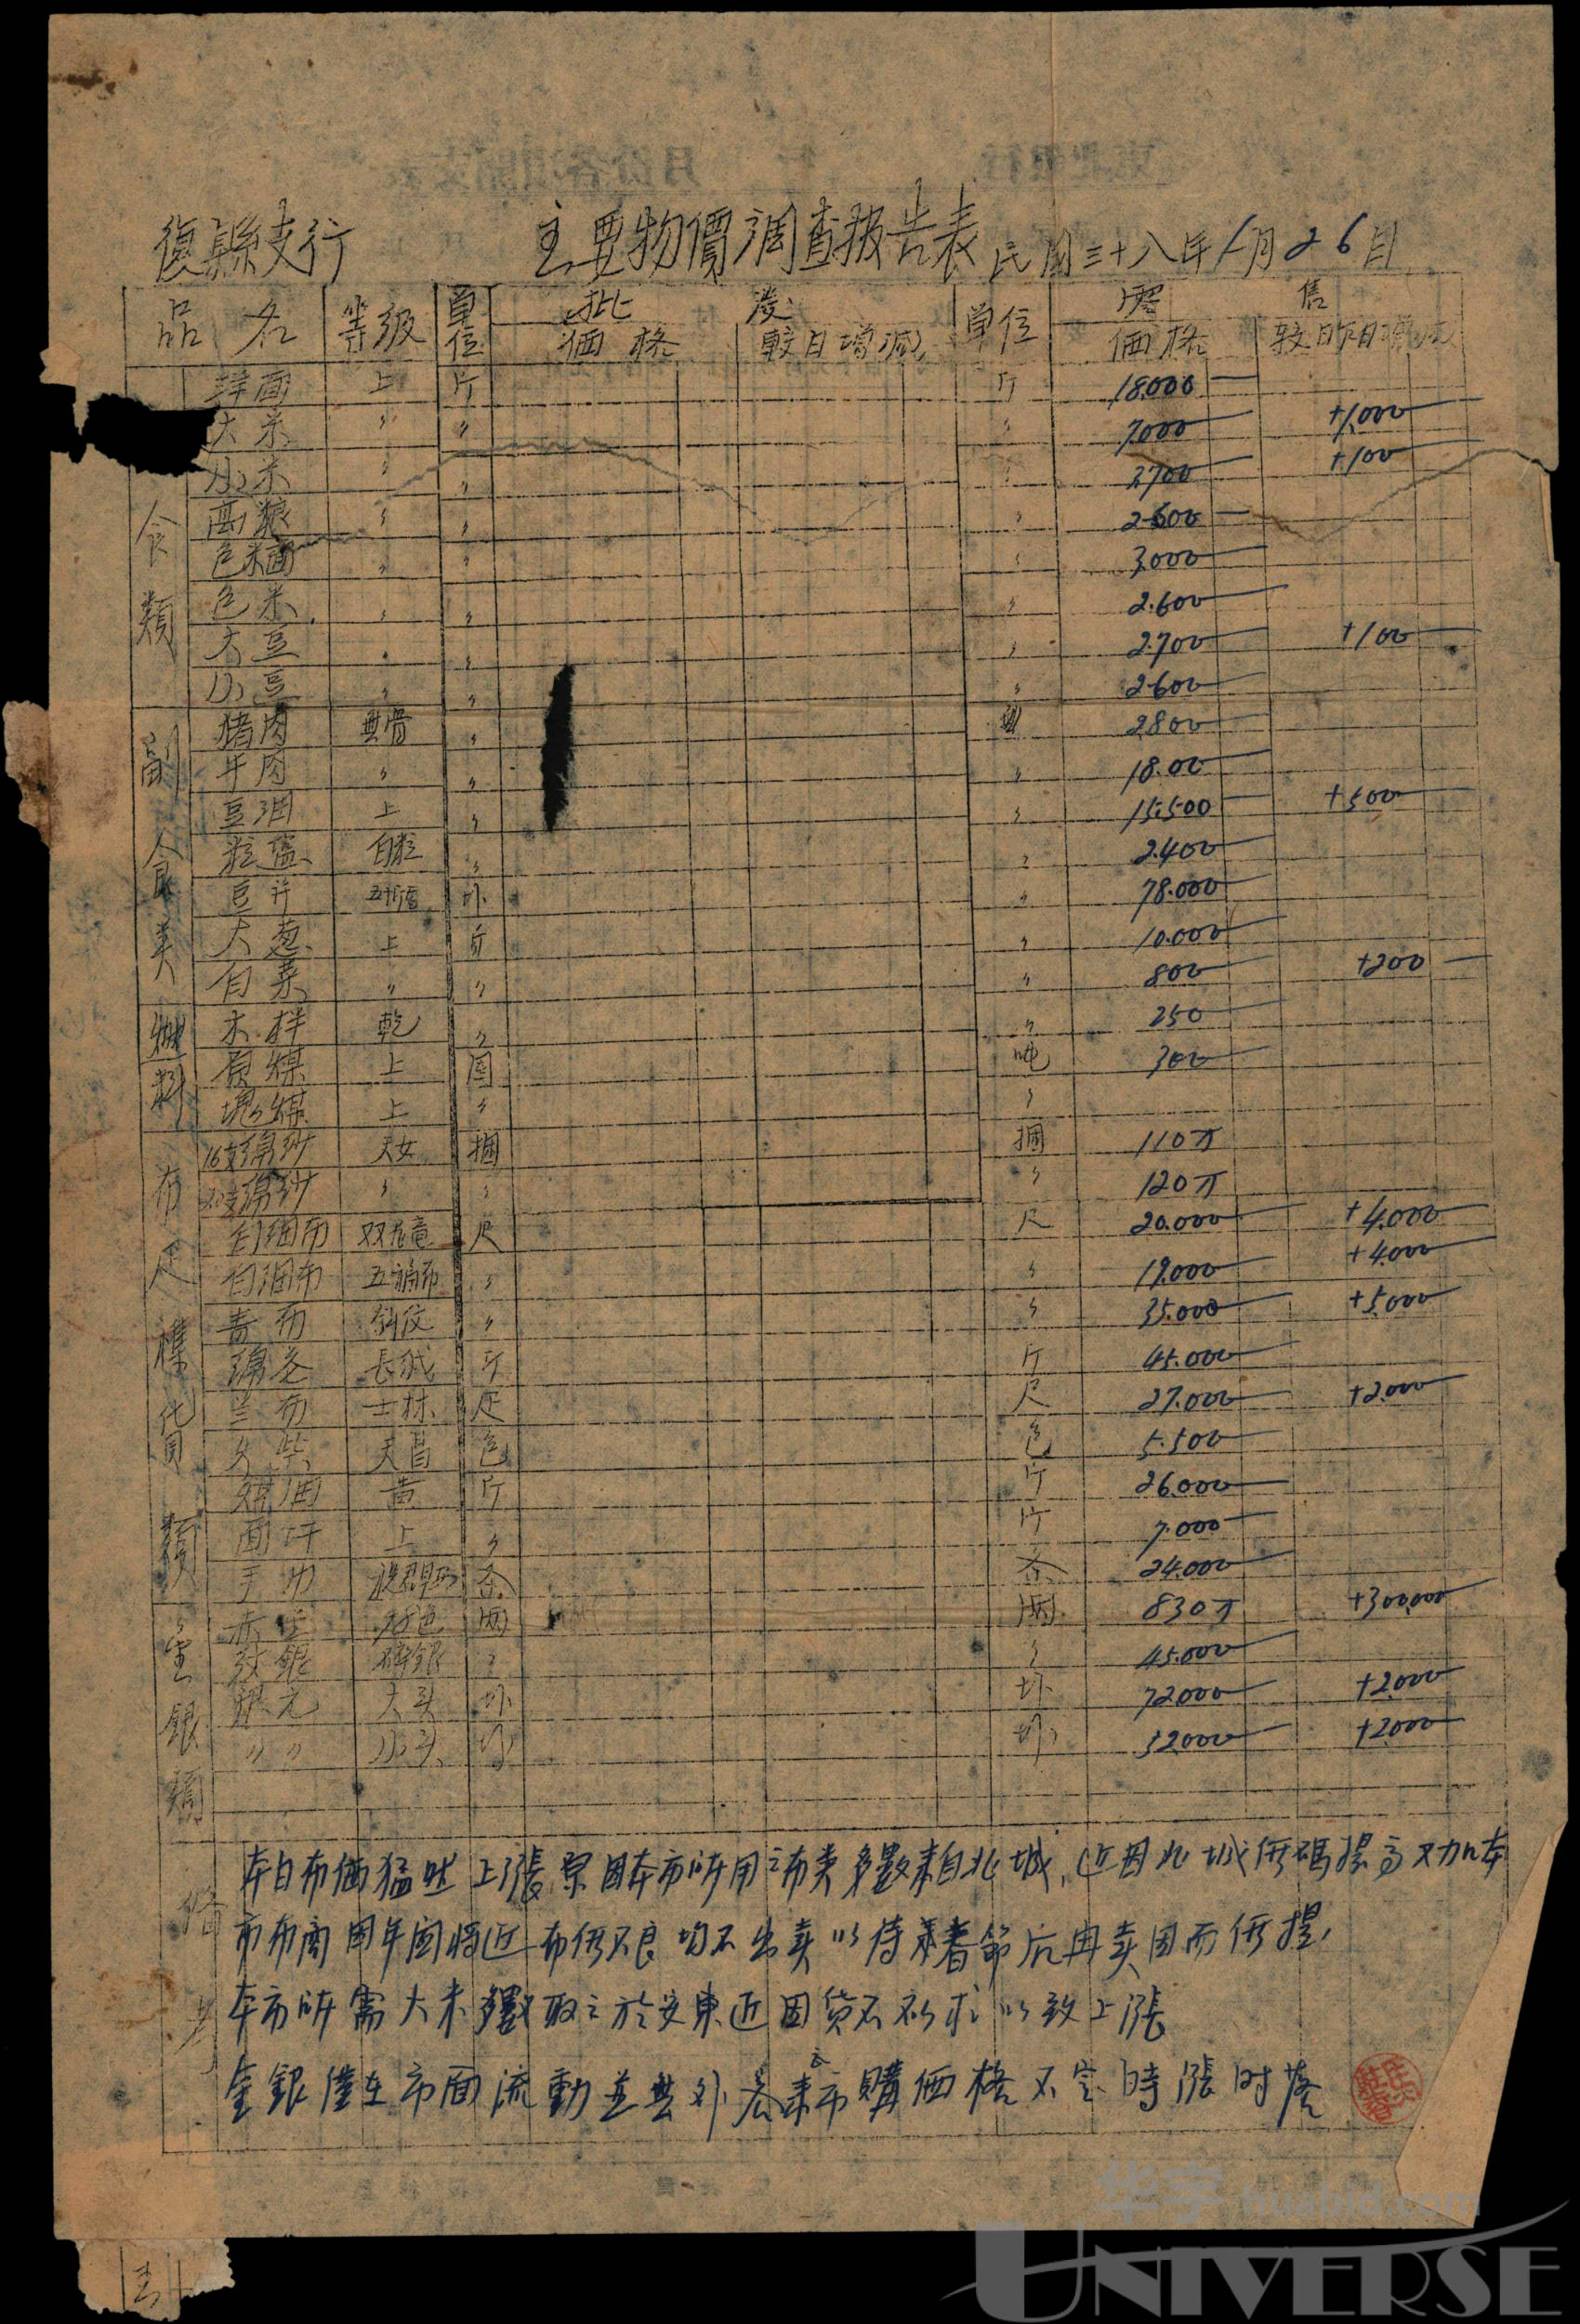 復縣支行 主要物價調查報告表 民國三十八年1月26日
品名 等級 単位 批發 単位 零售
価格 較日增減 価格 較昨日增減
洋面 上 斤 斤 18.000
大米 〃 〃 〃 7.000 +1.000
小米 〃 〃 〃 2.700 +100
高粮 〃 〃 〃 2.600
包米面 〃 〃 〃 3.000
包米 〃 〃 〃 2.600
大豆 〃 〃 〃 2.700 +100
小豆 〃 〃 〃 2.600
食類
猪肉 無骨 〃 2800
牛肉 〃 〃 〃 18.00
豆油 上 〃 〃 15.500 +500
粒盐 白粒 〃 〃 2.400
豆并 坏 〃 78.000
大葱 上 斤 〃 10.000
白菜 〃 〃 〃 800 +200
副食美
木柈 乾 〃 〃 250
原煤 上 吨 300
塊煤 上 〃 〃
燃料
16支綿纱 天女 捆 捆 110万
20支綿纱 〃 〃 〃 120万
白细布 双龙 尺 尺 20.000 +4.000
白细布 五福布 〃 〃 19.000 +4.000
青布 斜纹 〃 〃 35.000 +5.000
綿花 長绒 斤 斤 45.000
兰布 士林 尺 尺 27.000 +2.000
火柴 天昌 包 包 5.500
煤油 黄 斤 斤 26.000
面碱 上 〃 斤 7.000
手巾 条 条 24.000
布疋雜貨類
赤金 九八色 両 両 830万 +300.000
纹銀 碎銀 〃 〃 45.000
銀元 大头 坏 坏 72000 +2.000
〃〃 小头 坏 坏 52000 +2.000
金銀類
備考
本日布価猛然上漲原因本市所用之布类多數来自北城,近因北城価碼提高又加本
市布商因年関將近布価不良均不出卖以待春節后再卖因而価提,
本市所需大米多數取之於安東近因貨不供求以致上漲
金銀僅在市面流動並無外客来市購価格不定時漲时落
华宇 huabid.com
UNIVERSE